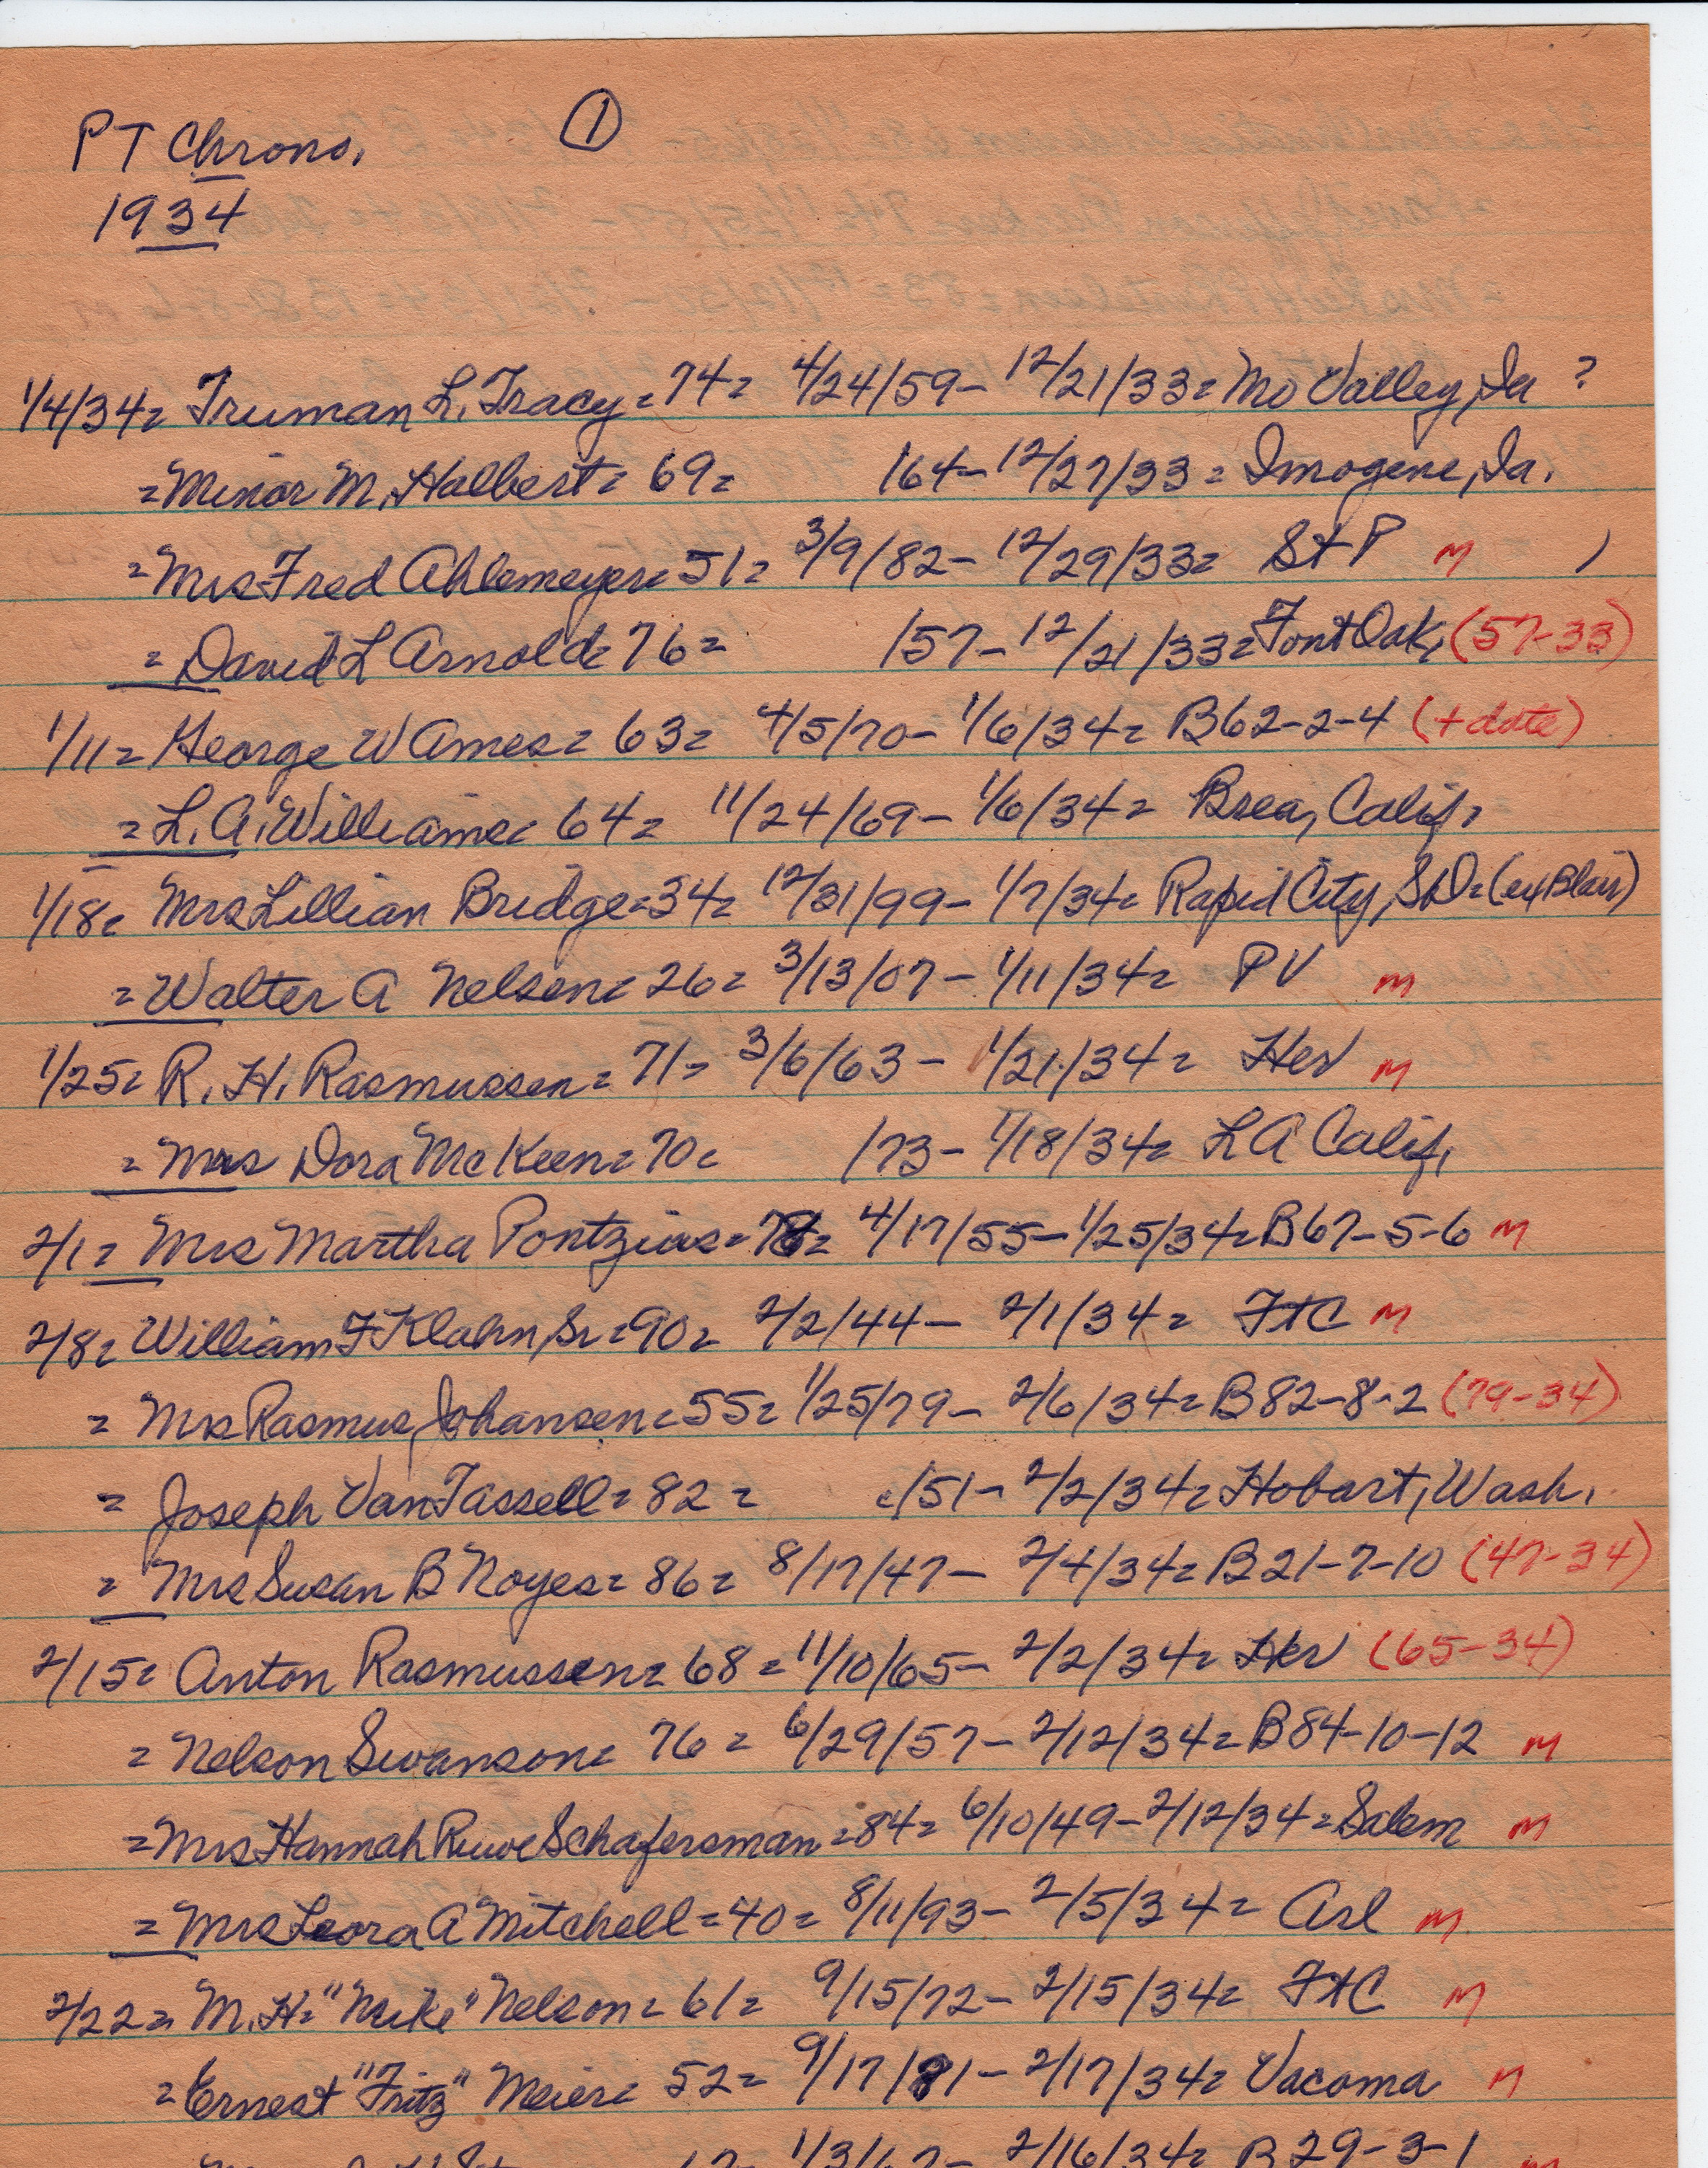 PT Chrono. ①
1934
1/4/34= Truman L. Tracy=74= 4/24/59- 12/21/33= Mo Valley, Ia ?
=Minor M. Halbert= 69= /64- 12/27/33= Imogene, Ia.
=Mrs Fred Ahlemeyer=51= 3/9/82- 12/29/33= St P m )
=David L Arnold=76= /57- 12/21/33= Font Oak, (57-33)
1/11= George W Ames= 63= 4/5/70- 1/6/34= B62-2-4 (+date)
=L. A. Williams= 64= 11/24/69- 1/6/34= Brea, Calif.
1/18= Mrs Lillian Bridge=34= 12/31/99- 1/7/34= Rapid City, SD=(ex Blair)
=Walter A Nelsen= 26= 3/13/07- 1/11/34= PV m
1/25= R. H. Rasmussen= 71= 3/6/63- 1/21/34= Her m
=Mrs Dora McKeen=70= /73- 1/18/34= LA Calif.
2/1= Mrs Martha Pontzius=78= 4/17/55-1/25/34=B67-5-6 m
2/8= William F Klahn, Sr=90= 2/2/44- 2/1/34= FtC m
= Mrs Rasmus Johansen=55= 1/25/79- 2/6/34= B82-8-2 (79-34)
= Joseph VanTassell= 82= c/51- 2/2/34= Hobart, Wash.
= Mrs Susan B Noyes= 86= 8/17/47- 2/4/34= B21-7-10 (47-34)
2/15= Anton Rasmussen= 68= 11/10/65- 2/2/34= Her (65-34)
= Nelson Swanson= 76= 6/29/57- 2/12/34= B84-10-12 m
=Mrs Hannah Ruwe Schafersman=84= 6/10/49-2/12/34=Salem m
=Mrs Leora A Mitchell=40= 8/11/93- 2/5/34= Arl m
2/22= M. H= "Mike" Nelson= 61= 9/15/72- 2/15/34= FtC m
=Ernest "Fritz" Meier= 52= 9/17/81- 2/17/34= Vacoma m
1/3/67- 2/16/34= B29-3-1 m